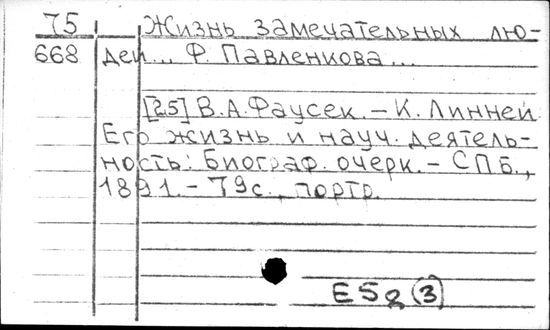 75 Жизнь замечательных лю-
668 дей... Ф. Павленкова...
[25] В.А.Фаусек. – К. Линней
Его жизнь и науч. деятель-
ность: Биограф. очерк. – СПБ.,
1891. – 79с., портр.
Е52 (3)